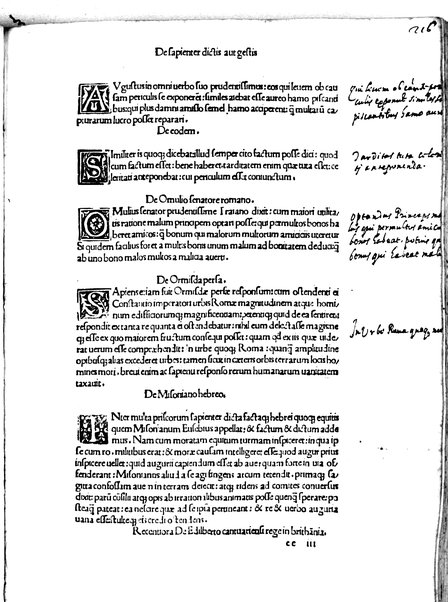 216
De sapienter dictis aut gestis
AVgustus in omni verbo suo prudentissimus: eos qui leuem ob cau
sam periculis se exponerēt: similes aiebat esse aureo hamo piscanti
bus: qui plus damni amisso semel hamo acciperent: q̄
pturarum lucro posset reparari.
De eodem.
SImiliter is quoq; dicebat illud semper cito factum posse dici: quod
cum factum esset: bene haberet: tarditatem enim quæ tuta esset: ce
leritati anteponebat: cui periculum esset coniunctum.
De Omulio senatore romano.
OMulius senator prudentissime Traiano dixit: cum maiori utilita
tis ratione malum principem optari posse: qui permultos bonos ha
beret amicos: q̄ bonum qui malorum multorum amicitiis uteretur
Si quidem facilius foret a multis bonis unum malum ad bonitatem deduci: q̄
ab uno bono malos multos a malicia auerti.
De Ormisda persa.
SApiens etiam fuit Ormisdæ persæ responsum: cum ostendenti ei
Constantio imperatori urbis Romæ magnitudinem atque homi
num ædificiorumq; magnificentiam: petentiq; quid de ea sentiret
respondit ex tanta re quanta ei ostendebatur: nihil eum delectasse magis: ne
q; esse ex quo maiorem fructum consequi posset: quam qd ex iis quæ uide
rat uerum esse comprehendit: in urbe quoq; Roma: quanq̄ amplitudine
opibusq; alias excederet urbes: tamen sicut in cæteris orbis terrarum locis ho
mines mori. breui enim ac sapienti responso rerum humanarum uanitatem
taxauit.
De Misoniano hebreo.
INter multa priscorum sapienter dicta factaq; hebrei quoq; equitis
quem Misonianum Eusebius appellat: & factum & dictum adde
mus. Nam cum moratam equitum turmam inspiceret: in qua ip
se cum ro. militibus erat: & moræ causam intelligeret esse: quod augur prius
inspicere uellet: quid augurii capiendum esset ab aue: quam forte in uia of
fenderant: Misonianus aliud a se agi fingens arcum tetendit. primaq; sa
gitta confossam auem in terram deiecit: atq; ridens ad comites conuersus
dixit: parū cōsilii atq; opis ab irrationalibus animātis posse quenq̄ sperare: po
steaq̄ pateat: ea nescire quæ ad se ipsa pertineant: & re & uerbo auguria
uana esse
Recentiora De Edilberto cantuariensi rege in brithānia.
cc iii
qui leuem ob causā per
culis exponunt similes
piscantibus hamo aureo
Tarditas tuta
anteponenda.
optandus Princeps ma
lus qui permultos amicos
bonos habeat. potius q
bonus qui habeat malos
In Urbe Roma quoq;